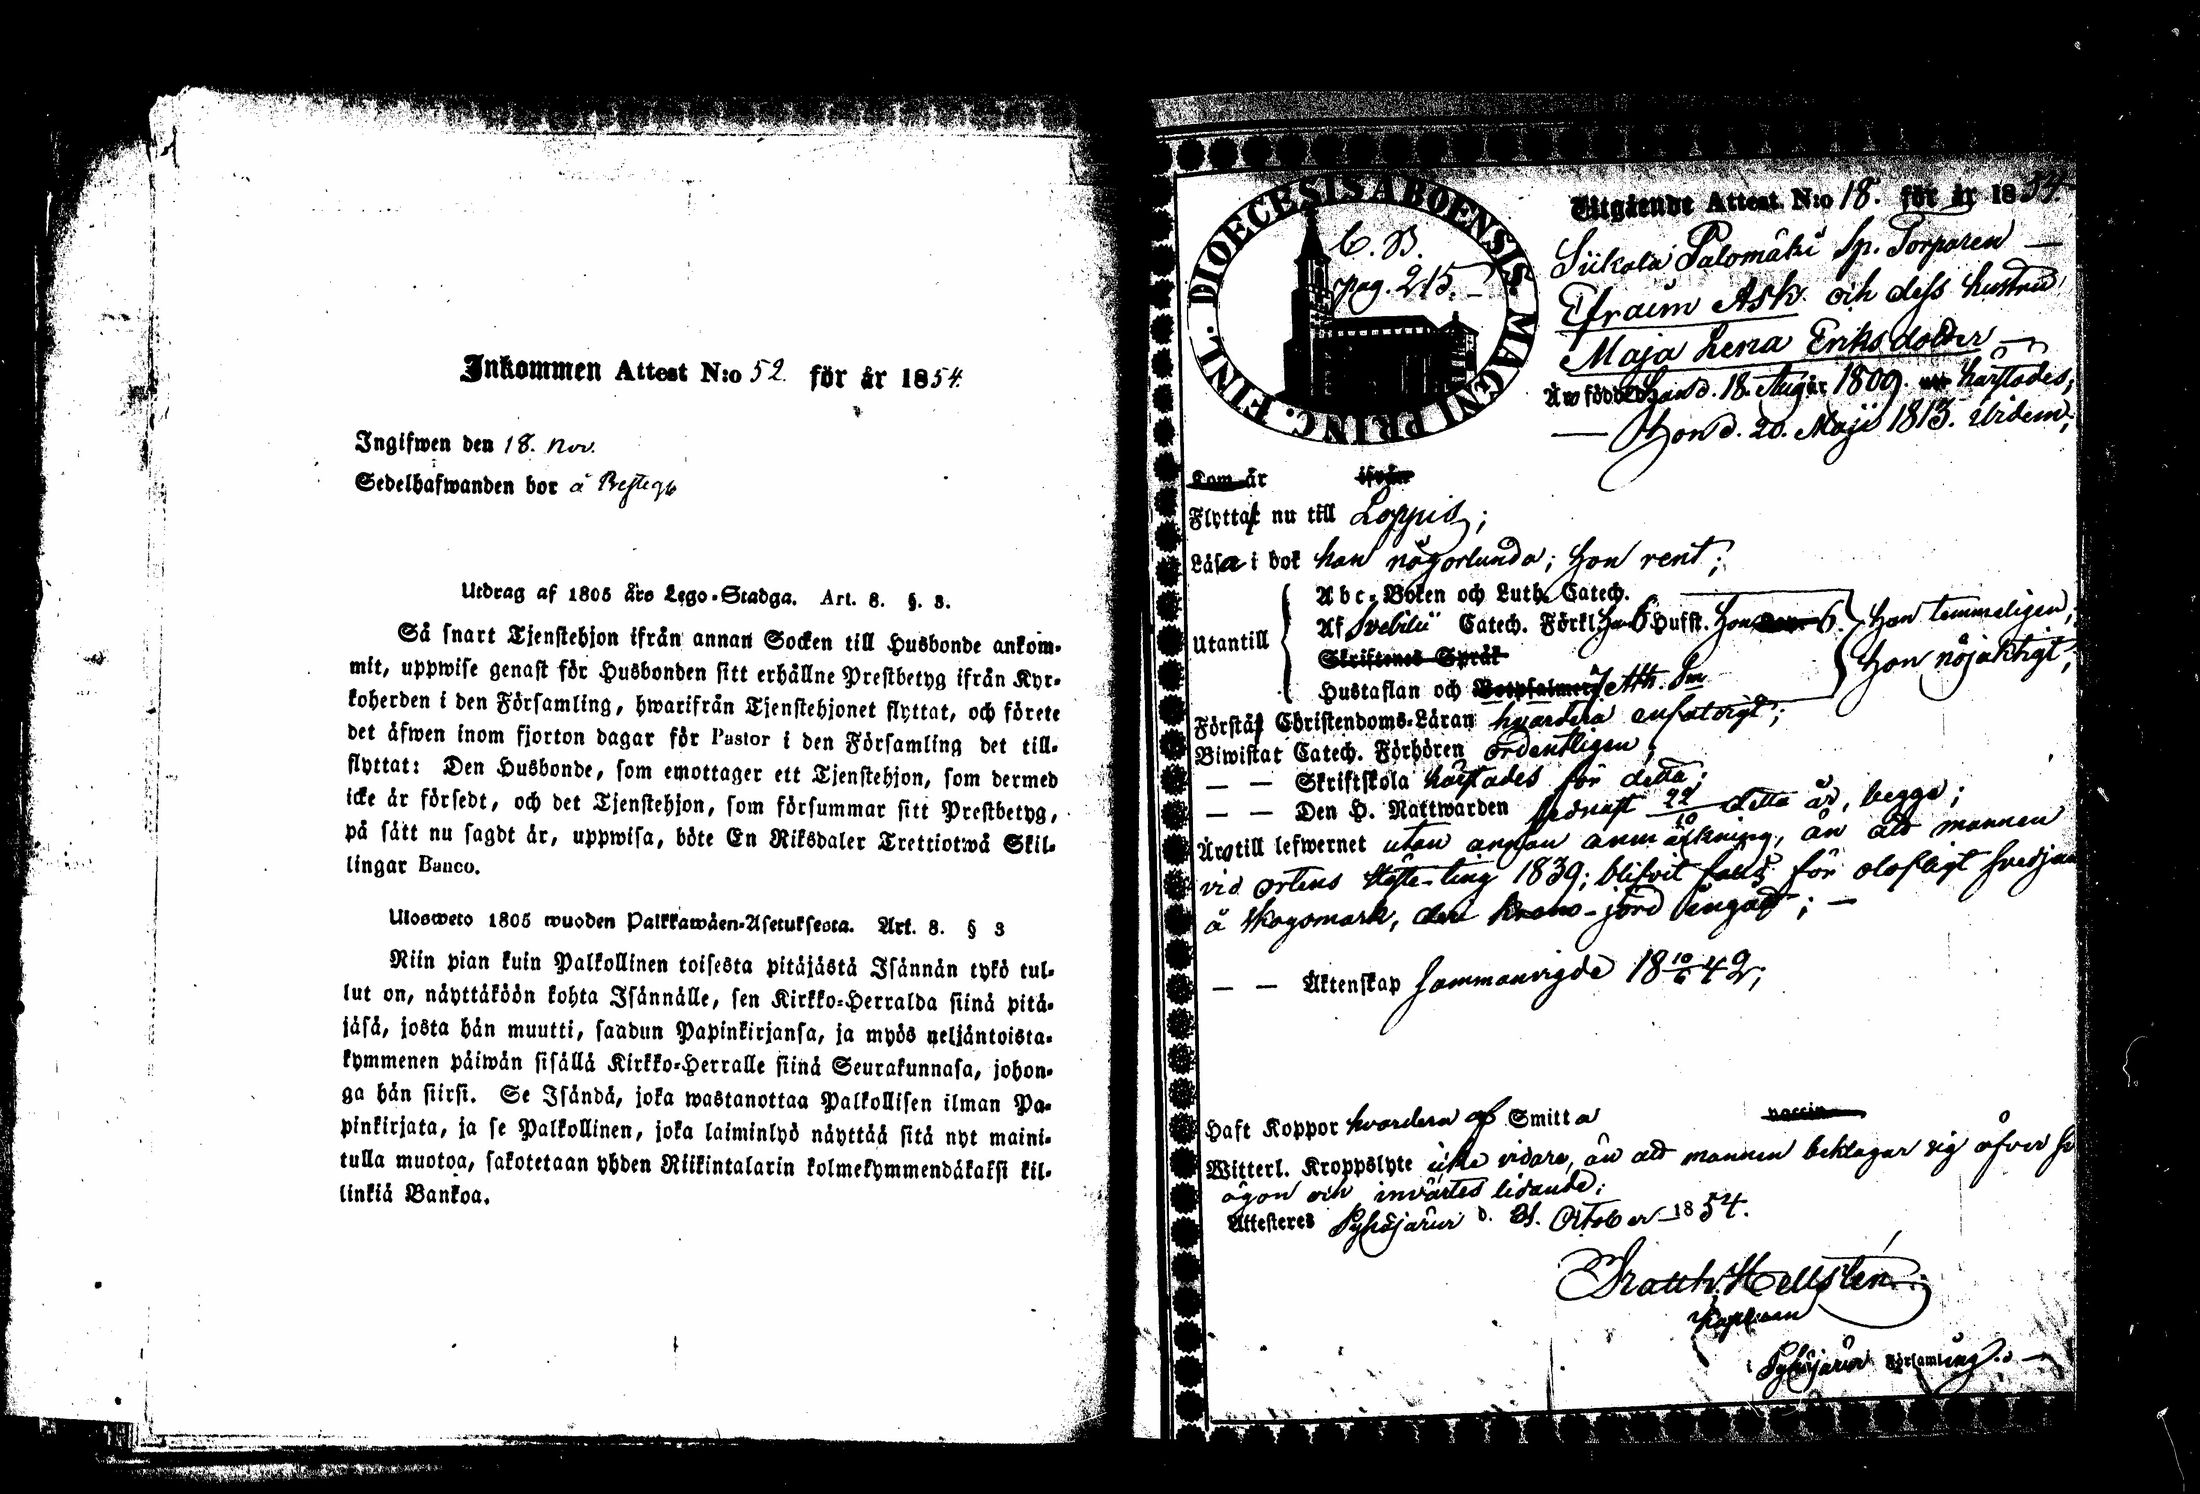 Inkommen Attest N:o 52. för år 1854.
Ingifwen den 18. Nov.
Sedelhafwanden bor å
Utdrag af 1805 års Lego-Stadga. Art. 8. §. 3.
Så snart Tjenstehjon ifrån annan Socken till Husbonde ankom-
mit, uppwise genast för Husbonden sitt erhållne Prestbetyg ifrån Kyr-
koherden i den Församling, hwarifrån Tjenstehjonet flyttat, och förete
det äfwen inom fjorton dagar för Pastor i den Församling det till-
flyttat: Den Husbonde, som emottager ett Tjenstehjon, som dermed
icke är försedt, och det Tjenstehjon, som försummar sitt Prestbetyg,
på sätt nu sagdt är, uppwisa, böte En Riksdaler Trettiotwå Skil-
lingar Banco.
Ulosweto 1805 wuoden Palkkawäen-Asetuksesta. Art. 8. § 3
Niin pian kuin Palkollinen toisesta pitäjästä Isännän tykö tul-
lut on, näyttäköön kohta Isännälle, sen Kirkko-Herralda siinä pitä-
jäsä, josta hän muutti, saadun Papinkirjansa, ja myös neljäntoista-
kymmenen päiwän sisällä Kirkko-Herralle siinä Seurakunnasa, johon-
ga hän siirsi. Se Isändä, joka wastanottaa Palkollisen ilman Pa-
pinkirjata, ja se Palkollinen, joka laiminlyö näyttää sitä nyt maini-
tulla muotoa, sakotetaan yhden Riikintalarin kolmekymmendäkaksi kil-
linkiä Bankoa.
DIOECESIS ABOENSIS MAGNI PRINC. FINL.
C. B.
pag. 215.
Utgående Attest N:o 18. för år 1854.
Siikala Palomäki Sp. Torparen
Efraim Ask och dess hustru
Maja Lena Eriksdotter
Äro födde han d. 18. Aug. år 1809. härstades;
Hon d. 20. Maji 1813. ibidem;
Kom år ifrån
Flyttat nu till Loppis;
Läsa i bok han någorlunda; hon rent;
Utantill
Abc-Boken och Luth. Catech.
Af Svebilii Catech. Förkl. han 6 Hufst. hon 6. han temmeligen;
Skriftenes Språk hon nöjaktigt;
Hustaflan och Botpsalmer Ath. Sm
Förstå Christendoms-Läran hvardera enfaldigt;
Biwistat Catech. Förhören ordentligen;
— — Skriftskola härstades för detta;
— — Den H. Nattwarden sednast 22/10 detta år, begge;
Äro till lefwernet utan annan anmärkning, än att mannen
vid ortens Höste-ting 1839; blifvit fälld för olofligt svedjan
å skogsmark, der krono-jord ingått;
— — Äktenskap sammanvigde 18 10/6 42;
Haft Koppor hvardera af Smitta vaccin
Witterl. Kroppslyte icke vidare, än att mannen beklagar sig öfver
ögon och invärtes lidande;
Attesteres Pyhäjärvi d. 31. October 1854.
Hellstén
Kapellan
i Pyhäjärvi Församling.